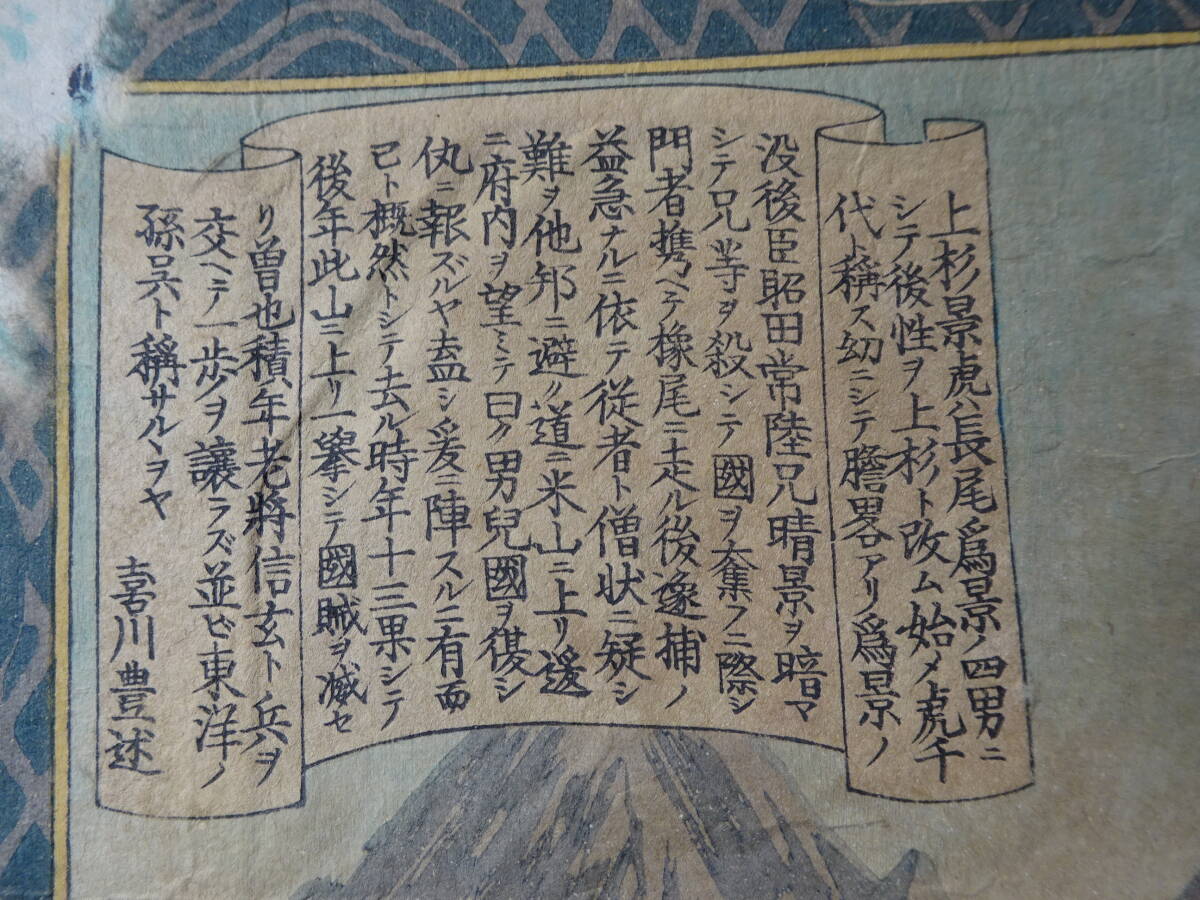 上杉景虎ハ長尾爲景ノ四男ニ
シテ後性ヲ上杉ト改ム始メ虎千
代ト稱ス幼ニシテ膽畧アリ爲景ノ
没後臣昭田常陸兄晴景ヲ暗マ
シテ兄等ヲ殺シテ國ヲ奪フニ際シ
門者携ヘテ橡尾ニ走ル後逡捕ノ
益急ナルニ依テ従者ト僧状ニ疑シ
難ヲ他邦ニ避ク道ニ米山ニ上リ遙
ニ府内ヲ望ミテ曰ク男兒國ヲ復シ
仇ニ報ズルヤ盍シ爰ニ陣スルニ有而
已ト概然トシテ去ル時年十三果シテ
後年此山ニ上リ一擧シテ國賊ヲ滅セ
リ曽也積年老將信玄ト兵ヲ
交ヘテ一歩ヲ讓ラズ並ビ東洋ノ
孫呉ト稱サルヽヲヤ
喜川豊述